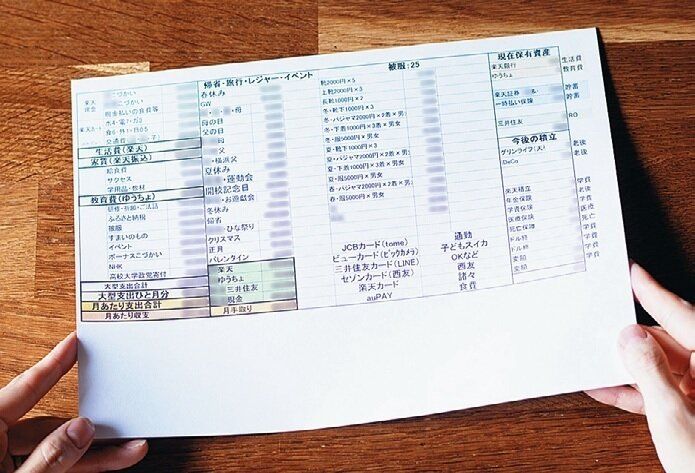 楽天 こづかい
現金 こづかい
現金払いの食費等
ホ4・電7・ガ3
食6・外1・日0.5
交通費
生活費(楽天)
家賃(楽天振込)
給食費
サクセス
学用品・教材
教育費(ゆうちょ)
研修・祈祷・ご法話
ふるさと納税
被服
すまいのもの
イベント
ボーナスこづかい
NHK
高校大学政党寄付
大型支出合計
大型支出ひと月分
月あたり支出合計
月あたり収支
帰省・旅行・レジャー・イベント
春休み
GW
・母
母の日
父の日
母
父
・横浜父
夏休み
・運動会
開校記念日
・お遊戯会
冬休み
帰省
・ひな祭り
クリスマス
正月
バレンタイン
楽天
ゆうちょ
三井住友
現金
月手取り
被服:25
靴2000円×5
上靴2000円×3
長靴1000円×2
冬・靴下1000円×3
冬・パジャマ2000円×2着×男
冬・下着1000円×3着×男女
冬・服5000円×男女
夏・靴下1000円×3
夏・パジャマ2000円×2着×男
夏・下着1000円×3着×男女
夏・服5000円×男女
春・パジャマ2000円×2着×男女
春・服5000円×男女
JCBカード(tome) 通勤
ビューカード(ビックカメラ) 子どもスイカ
三井住友カード(LINE) OKなど
セゾンカード(西友) 西友
楽天カード 諸々
auPAY 食費
現在保有資産
楽天銀行 生活費
ゆうちょ 教育費
楽天証券 貯蓄
一時払い保険 貯蓄
三井住友
今後の積立
グリンライフ(夫) 老後
iDeCo 老後
学費
楽天積立 老後
年金保険 学費
学資保険 医療
医療保険 死亡
死亡保障 老後
ドル終 学費
ドル終
変額
変額 学費